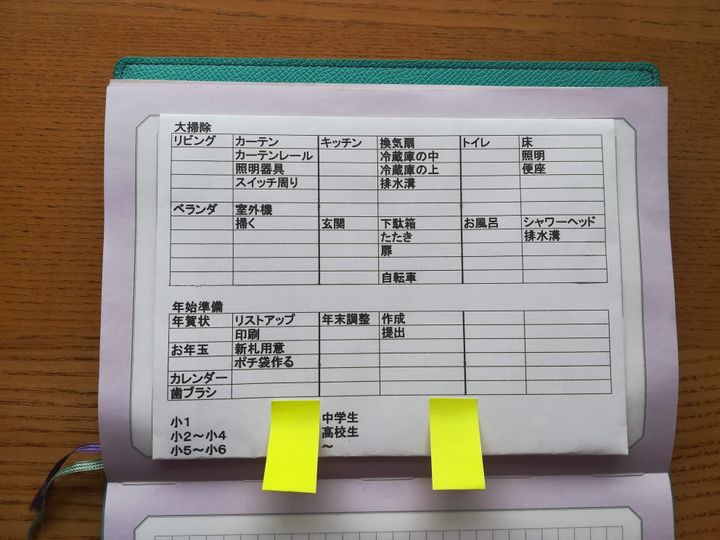 大掃除
リビング カーテン キッチン 換気扇 トイレ 床
カーテンレール 冷蔵庫の中 照明
照明器具 冷蔵庫の上 便座
スイッチ周り 排水溝
ベランダ 室外機
掃く 玄関 下駄箱 お風呂 シャワーヘッド
たたき 排水溝
扉
自転車
年始準備
年賀状 リストアップ 年末調整 作成
印刷 提出
お年玉 新札用意
ポチ袋作る
カレンダー
歯ブラシ
小1 中学生
小2～小4 高校生
小5～小6 ～